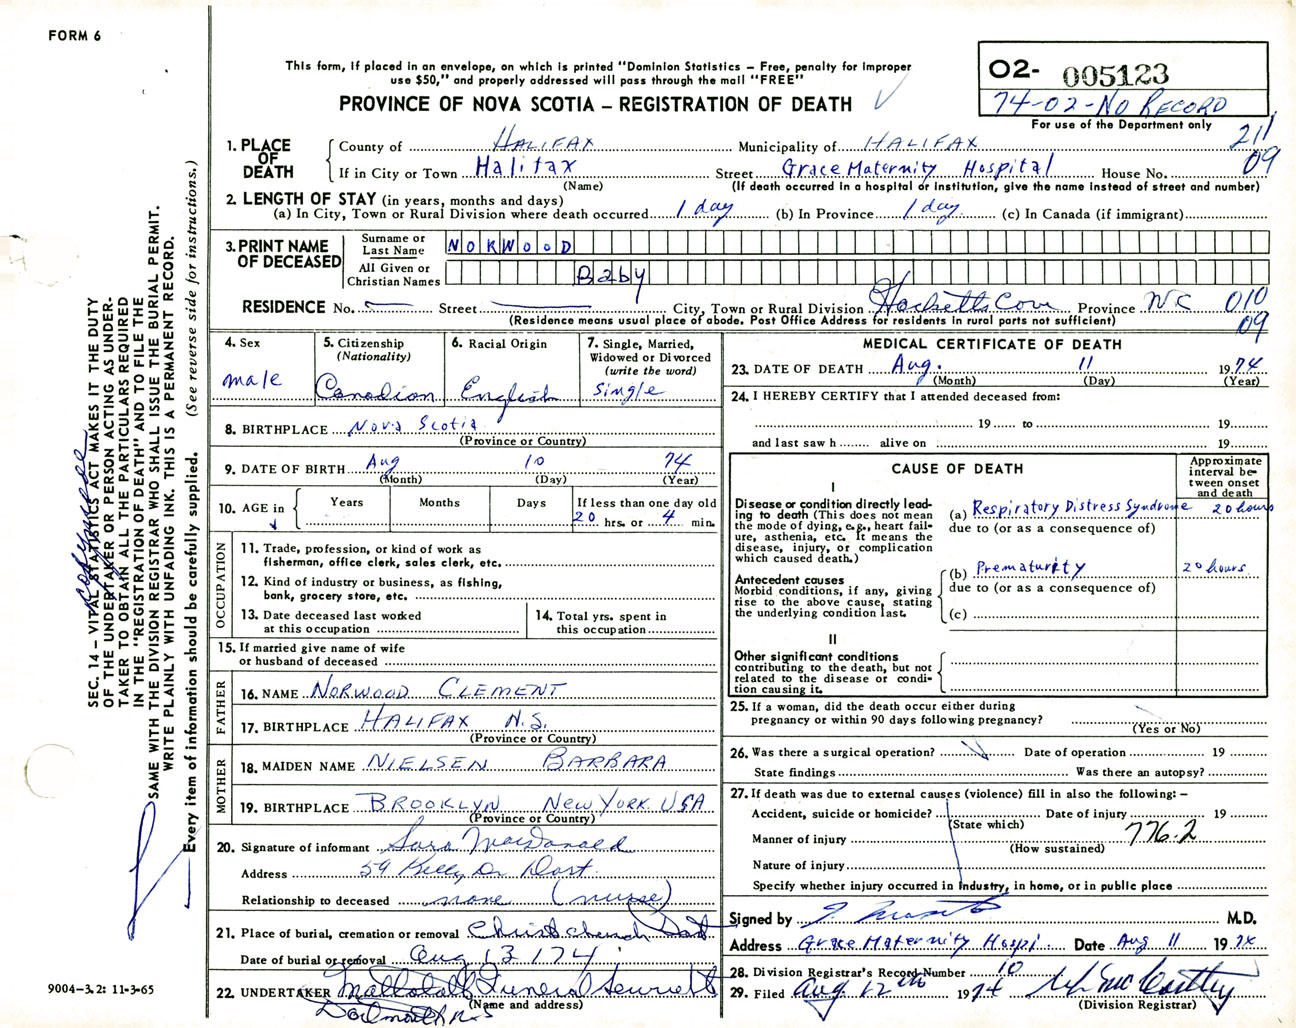 FORM 6
This form, if placed in an envelope, on which is printed "Dominion Statistics – Free, penalty for improper
use $50," and properly addressed will pass through the mail "FREE"
PROVINCE OF NOVA SCOTIA – REGISTRATION OF DEATH
02- 005123
74-02-No RECORD
For use of the Department only
211
09
1. PLACE OF DEATH
County of HALIFAX Municipality of HALIFAX
If in City or Town Halifax Street Grace Maternity Hospital House No.
(Name) (If death occurred in a hospital or institution, give the name instead of street and number)
2. LENGTH OF STAY (in years, months and days)
(a) In City, Town or Rural Division where death occurred 1 day (b) In Province 1 day. (c) In Canada (if immigrant)
3. PRINT NAME OF DECEASED
Surname or Last Name NORWOOD
All Given or Christian Names Baby
RESIDENCE No. Street City, Town or Rural Division Hacketts Cove Province 010
09
(Residence means usual place of abode. Post Office Address for residents in rural parts not sufficient)
4. Sex
male
5. Citizenship
(Nationality)
Canadian
6. Racial Origin
English
7. Single, Married,
Widowed or Divorced
(write the word)
Single
8. BIRTHPLACE Nova Scotia
(Province or Country)
9. DATE OF BIRTH Aug 10 74
(Month) (Day) (Year)
10. AGE in
Years Months Days If less than one day old
20 hrs. or 4 min.
OCCUPATION
11. Trade, profession, or kind of work as
fisherman, office clerk, sales clerk, etc.
12. Kind of industry or business, as fishing,
bank, grocery store, etc.
13. Date deceased last worked
at this occupation
14. Total yrs. spent in
this occupation
15. If married give name of wife
or husband of deceased
FATHER
16. NAME NORWOOD CLEMENT
17. BIRTHPLACE HALIFAX N.S.
(Province or Country)
MOTHER
18. MAIDEN NAME NIELSEN BARBARA
19. BIRTHPLACE BROOKLYN NEW YORK USA
(Province or Country)
20. Signature of informant Sara MacDonald
Address 59 Kelly Dr Dart.
Relationship to deceased none (nurse)
21. Place of burial, cremation or removal Christ church Dart
Date of burial or removal Aug 13/74
22. UNDERTAKER Mattatall Funeral
(Name and address)
Dartmouth N.S
MEDICAL CERTIFICATE OF DEATH
23. DATE OF DEATH Aug. 11 1974
(Month) (Day) (Year)
24. I HEREBY CERTIFY that I attended deceased from:
19 to 19
and last saw h alive on 19
CAUSE OF DEATH
Approximate
interval be-
tween onset
and death
I
Disease or condition directly lead-
ing to death (This does not mean
the mode of dying, e.g., heart fail-
ure, asthenia, etc. It means the
disease, injury, or complication
which caused death.)
(a) Respiratory Distress Syndrome 20 hours
due to (or as a consequence of)
Antecedent causes
Morbid conditions, if any, giving
rise to the above cause, stating
the underlying condition last.
(b) Prematurity 20 hours
due to (or as a consequence of)
(c)
II
Other significant conditions
contributing to the death, but not
related to the disease or condi-
tion causing it.
25. If a woman, did the death occur either during
pregnancy or within 90 days following pregnancy?
(Yes or No)
26. Was there a surgical operation? Date of operation 19
State findings Was there an autopsy?
27. If death was due to external causes (violence) fill in also the following: –
Accident, suicide or homicide? Date of injury 19
(State which)
Manner of injury 776.2
(How sustained)
Nature of injury
Specify whether injury occurred in industry, in home, or in public place
Signed by M.D.
Address Grace Maternity Hospi. Date Aug 11 1974
28. Division Registrar's Record Number 10
29. Filed Aug 12th 1974
(Division Registrar)
SEC. 14 – VITAL STATISTICS ACT MAKES IT THE DUTY
OF THE UNDERTAKER OR PERSON ACTING AS UNDER-
TAKER TO OBTAIN ALL THE PARTICULARS REQUIRED
IN THE "REGISTRATION OF DEATH" AND TO FILE THE
SAME WITH THE DIVISION REGISTRAR WHO SHALL ISSUE THE BURIAL PERMIT.
WRITE PLAINLY WITH UNFADING INK. THIS IS A PERMANENT RECORD.
Every item of information should be carefully supplied. (See reverse side for instructions.)
9004-3.2: 11-3-65